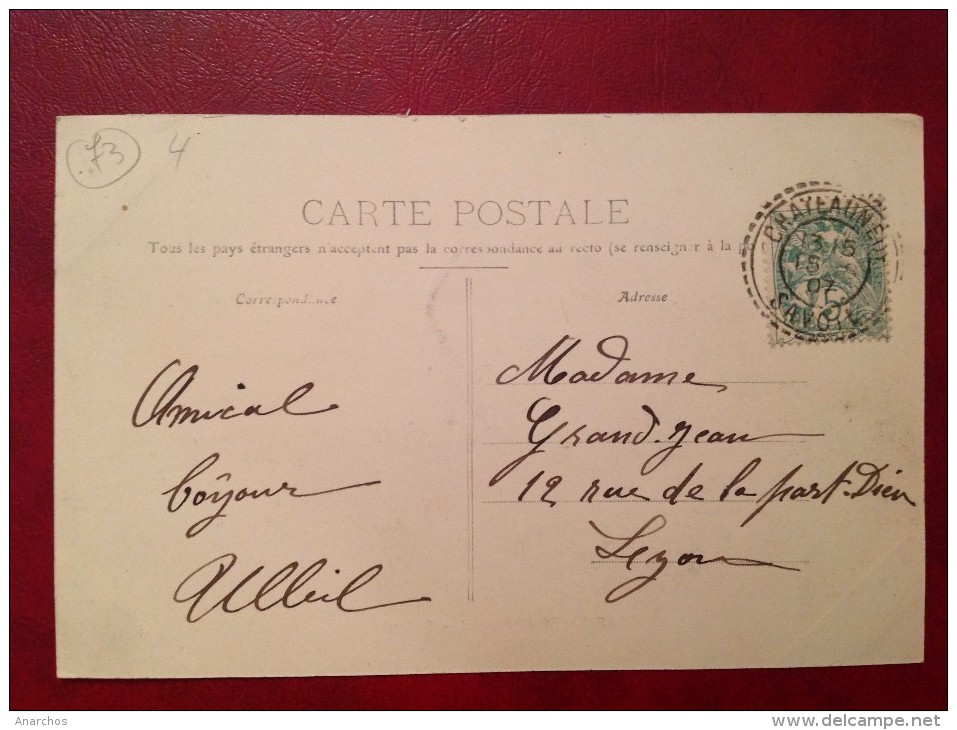 73 4
CARTE POSTALE
Tous les pays étrangers n'acceptent pas la correspondance au recto (se renseigner à la p
Correspondance
Adresse
CHATEAUNEUF
13 15
15
07
SAVOIE
5
Amical
bonjour
Madame
Grand-Jean
12 rue de la part-Dieu
Lyon
Anarchos
delcampe.net